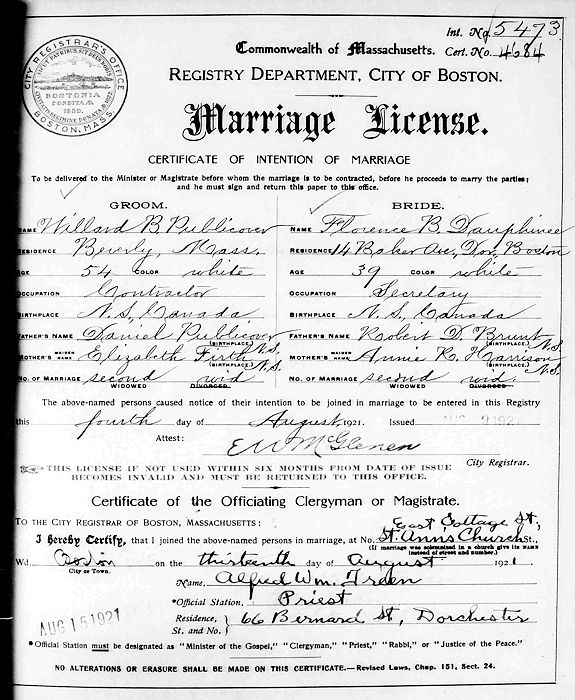 Int. No. 5473
Commonwealth of Massachusetts. Cert. No. 4684
CITY REGISTRAR'S OFFICE
BOSTONIA
CONDITA A.D.
1630.
BOSTON, MASS.
REGISTRY DEPARTMENT, CITY OF BOSTON.
Marriage License.
CERTIFICATE OF INTENTION OF MARRIAGE
To be delivered to the Minister or Magistrate before whom the marriage is to be contracted, before he proceeds to marry the parties;
and he must sign and return this paper to this office.
GROOM.
NAME Willard B. Publicover
RESIDENCE Beverly, Mass.
AGE 54 COLOR white
OCCUPATION Contractor
BIRTHPLACE N.S., Canada
FATHER'S NAME Daniel Publicover
(BIRTHPLACE.) N.S.
MOTHER'S MAIDEN NAME Elizabeth Firth
(BIRTHPLACE.) N.S.
NO. OF MARRIAGE second wid
WIDOWED DIVORCED
BRIDE.
NAME Florence B. Dauphinee
RESIDENCE 14 Baker Ave, Dor, Boston
AGE 39 COLOR white
OCCUPATION Secretary
BIRTHPLACE N.S., Canada
FATHER'S NAME Robert D. Brunt
(BIRTHPLACE.) N.S.
MOTHER'S MAIDEN NAME Annie R. Harrison
(BIRTHPLACE.) N.S.
NO. OF MARRIAGE second wid.
WIDOWED DIVORCED
The above-named persons caused notice of their intention to be joined in marriage to be entered in this Registry
this fourth day of August, 1921. Issued AUG 9 1921
Attest: E W McGlenen
City Registrar.
THIS LICENSE IF NOT USED WITHIN SIX MONTHS FROM DATE OF ISSUE
BECOMES INVALID AND MUST BE RETURNED TO THIS OFFICE.
Certificate of the Officiating Clergyman or Magistrate.
TO THE CITY REGISTRAR OF BOSTON, MASSACHUSETTS: East Cottage St,
I hereby Certify, that I joined the above-named persons in marriage, at No. St. Anns Church St.,
(If marriage was solemnized in a church give its NAME
instead of street and number.)
W'd Boston on the thirteenth day of August 1921
City or Town.
Name, Alfred Wm. Treen
*Official Station, Priest
Residence, 66 Bernard St, Dorchester
St. and No.
AUG 15 1921
*Official Station must be designated as "Minister of the Gospel," "Clergyman," "Priest," "Rabbi," or "Justice of the Peace."
NO ALTERATIONS OR ERASURE SHALL BE MADE ON THIS CERTIFICATE.—Revised Laws, Chap. 151, Sect. 24.